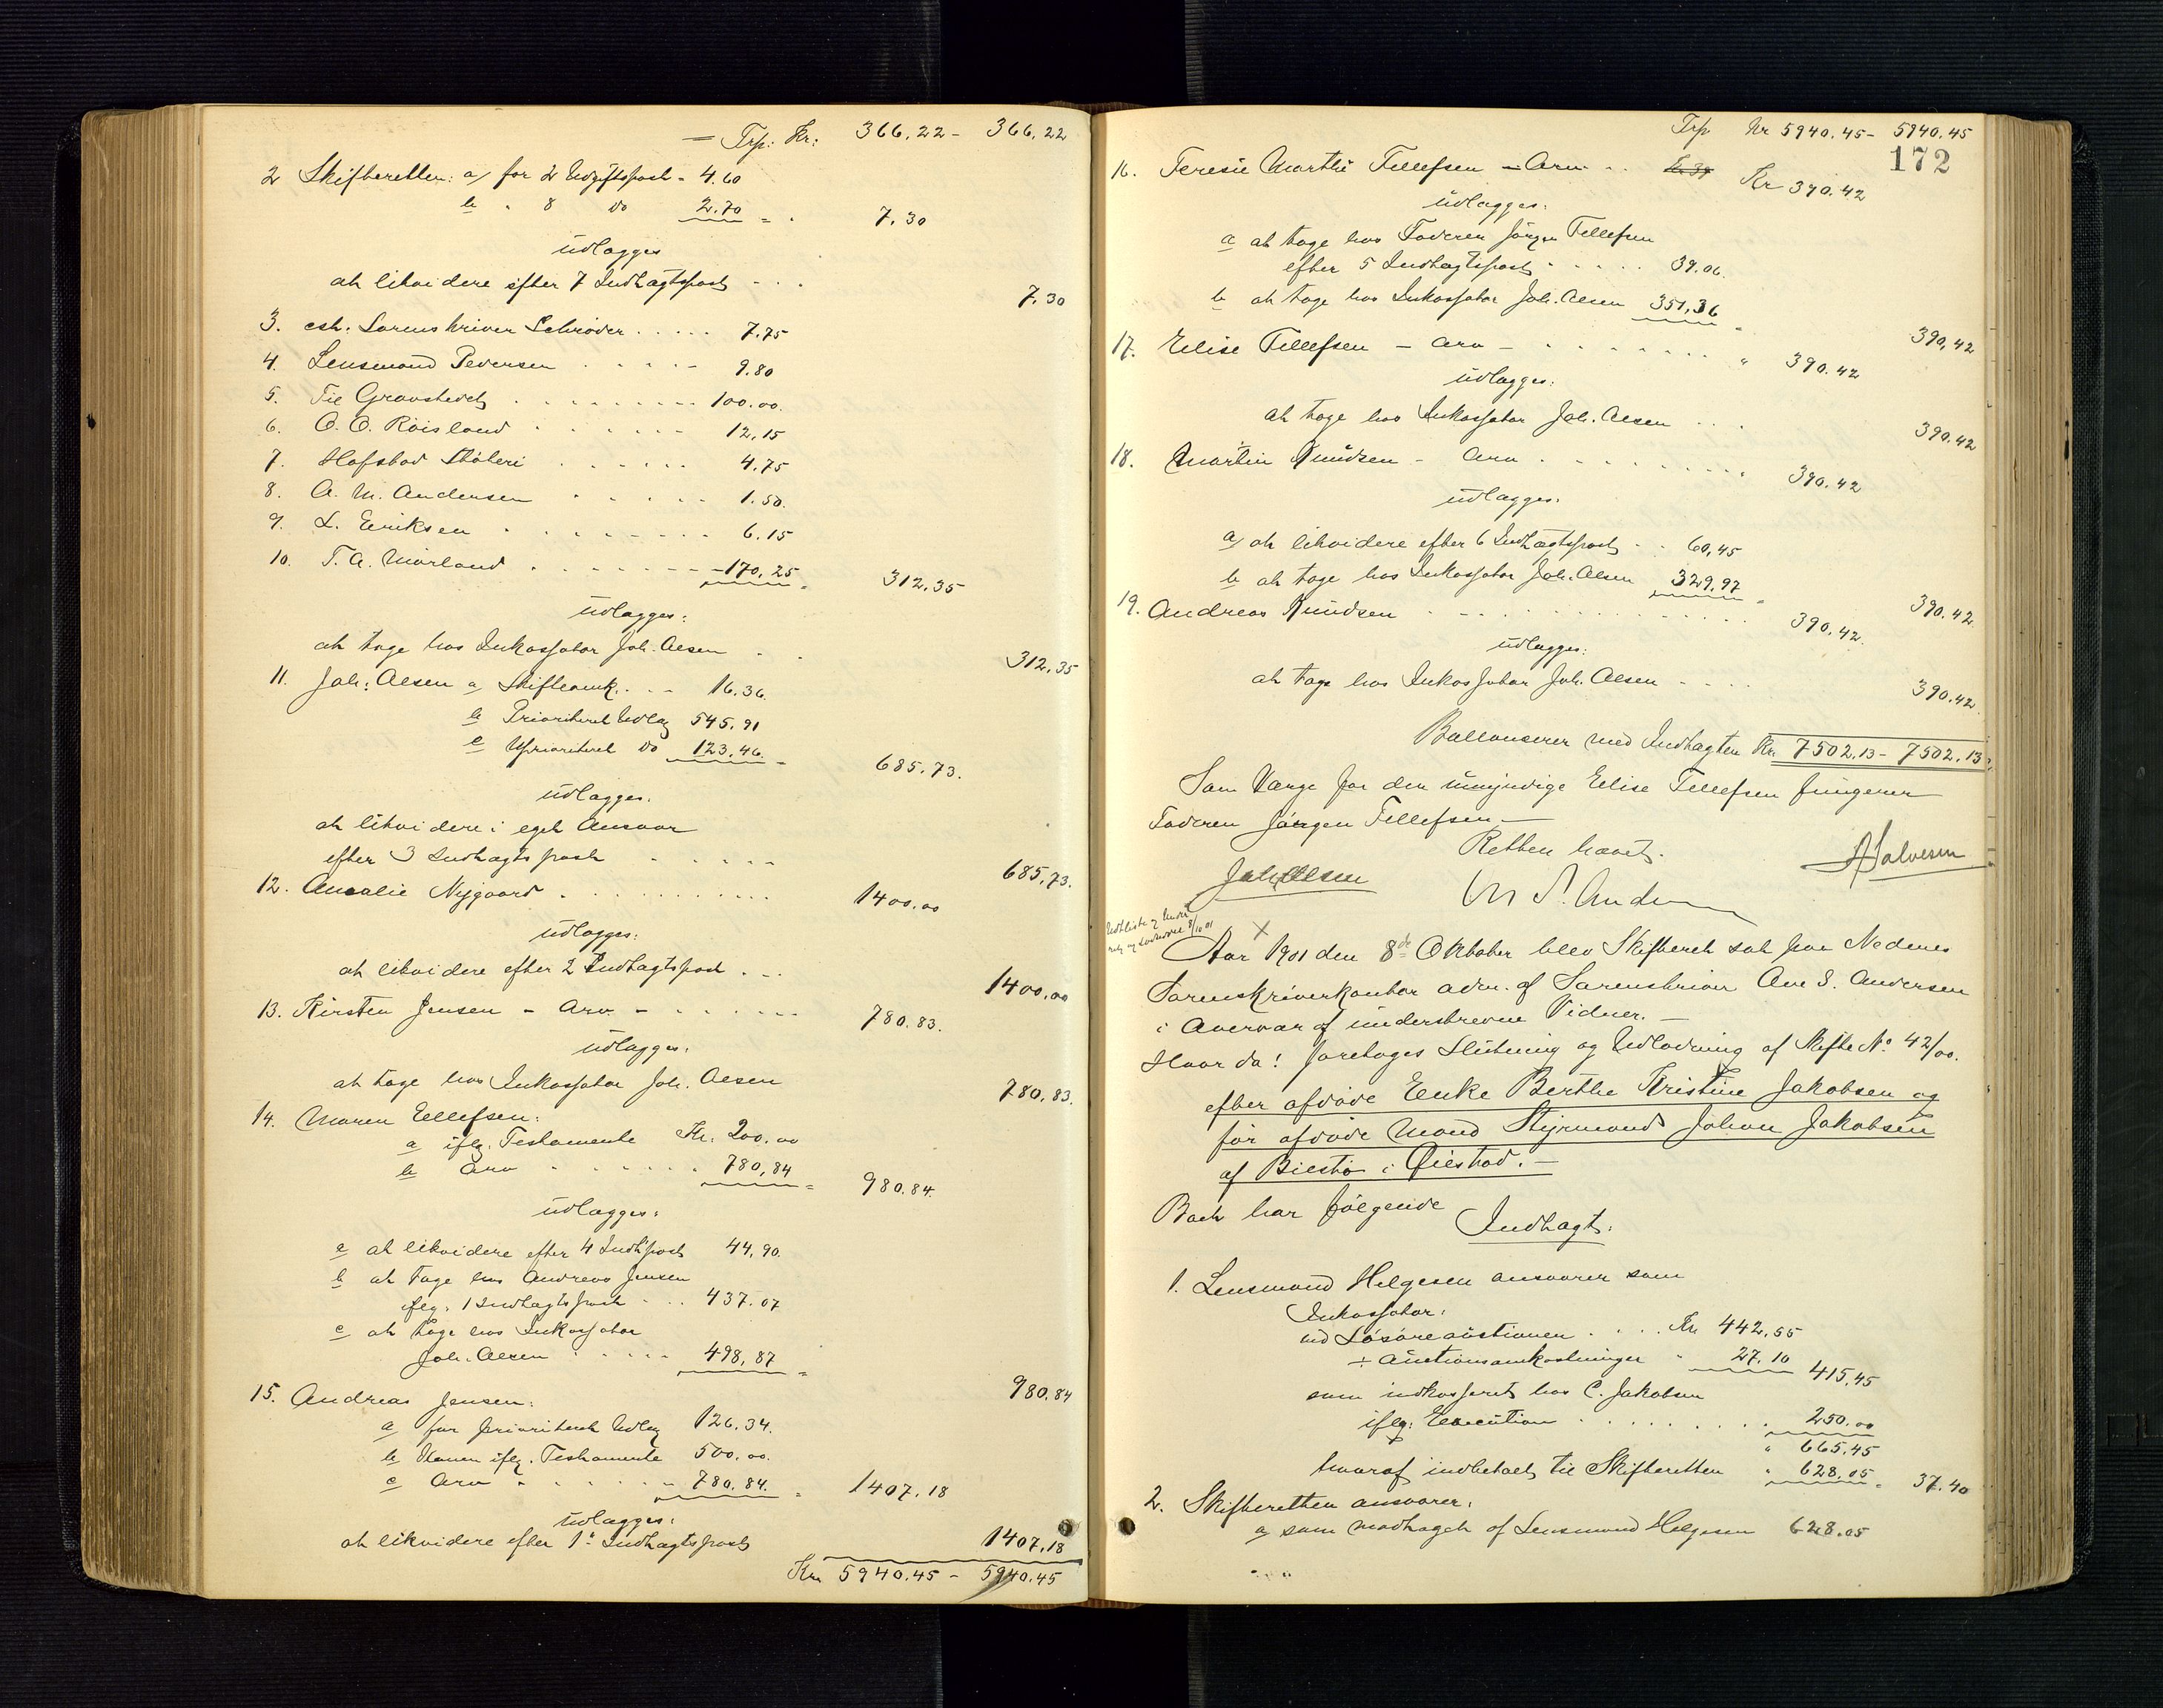 Trp. Kr: 366.22 - 366.22
2 Skifteretten: a, for 2 Udgiftspost - 4.60
b " 8 do 2.70 = 7.30
udlægges
at likvidere efter 7 Indtægtspost - - . 7.30
3. cst. Sorenskriver Schrøder . . . . . 7.75
4. Lensmand Pedersen . . . . - 9.80
5. Til Gravstedet . . . . . . . . 100.00.
6. O. O. Røisland . . . . . . 12.15
7. Hofstad . . . . . . 4.75
8. A. M. Andersen . . . . . 1.50.
9. L. Eriksen . . . . . . . 6.15
10. T. A. Mørland . . . . . . . 170.25 = 312.35
udlægges:
at tage hos Inkassator Joh. Olsen . . 312.35
11. Joh: Olsen a, Skifteomk. . . - 16.36.
b Prioriteret Udlæg 545.91
c Uprioriteret do 123.46. - 685.73.
udlægges.
at likvidere i eget Ansvar
efter 3 Indtægtspost . . . . . 685.73.
12. Amalie Nygaard . . . . . . . . . . 1400.00
udlægges:
at likvidere efter 2 Indtægtspost . . . 1400.00
13. Kirsten Jensen - Arv. - - - - - - - 780.83.
udlægges.
at tage hos Inkassator Joh. Olsen 780.83.
14. Maren Ellefsen:
a iflg. Testamente Kr. 200.00
b Arv . . . . . . . 780,84 = 980.84.
udlægges:
a at likvidere efter 4 Indt.post 44,90.
b at tage hos Andreas Jensen
iflg. 1 Indtægtspost . . . 437.07
c at tage hos Inkassator
Joh. Olsen . . . . . 498,87 =
980.84
15. Andreas Jensen:
a, for prioriteret Udlæg 126.34.
b iflg. Testamente 500.00.
c Arv . . . . . . 780.84. = 1407.18
udlægges:
at likvidere efter 1ste Indtægtspost 1407.18
Kr. 5940.45 - 5940.45
Trp Kr 5940.45 - 5940.45
172
16. Teresie Marthe Tellefsen - Arv . . Kr 390.42
udlægges:
a at tage hos Faderen Jørgen Tellefsen
efter 5 Indtægtspost . . . . . 39.06.
b at tage hos Inkassator Joh. Olsen 351,36 =
390,42
17. Elise Tellefsen - Arv - . . . . . . . . " 390.42
udlægges:
at tage hos Inkassator Joh. Olsen . . . 390.42
18. Martin Knudsen - Arv . . . . . . . . . " 390.42
udlægges.
a, at likvidere efter 6 Indtægtspost . . 60,45
b at tage hos Inkassator Joh. Olsen 329.97 =
390.42
19. Andreas Knudsen . . . . . . . . . . . . 390.42.
udlægges:
at tage hos Inkassator Joh. Olsen - - - . 390.42.
Ballanserer med Indtægten Kr. 7502.13 - 7502.13
Som Værge for den umyndige Elise Tellefsen fungerer
Faderen Jørgen Tellefsen. -
Retten hævet.
Joh Olsen A. S. Anders
Aar 1901 den 8de Oktober blev Skifteret sat paa Nedenes
Sorenskriverkontor adm. af Sorenskriver Ave S. Andersen
i Overvær af understrevne Vidner. -
Hvor da! foretoges Slutning og Udlodning af Skifte No 42/00.
efter afdøde Enke Berthe Kristine Jakobsen og
før afdøde Mand Styrmand Johan Jakobsen
af Biestø i Øiestad. -
Boet har følgende
Indtægt:
1. Lensmand Helgesen ansvarer som
Inkassator:
ved Løsøreauktionen . . . . Kr 442,55
÷ Auctionsomkostninger " 27.10 415.45
som indkasseret hos C. Jakobsen
iflg: Execution . . . . . . . . . 250.00
" 665.45
hvoraf indbetalt til Skifteretten " 628.05 = 37.40
2. Skifteretten ansvarer:
a, som modtaget af Lensmand Helgesen 628.05